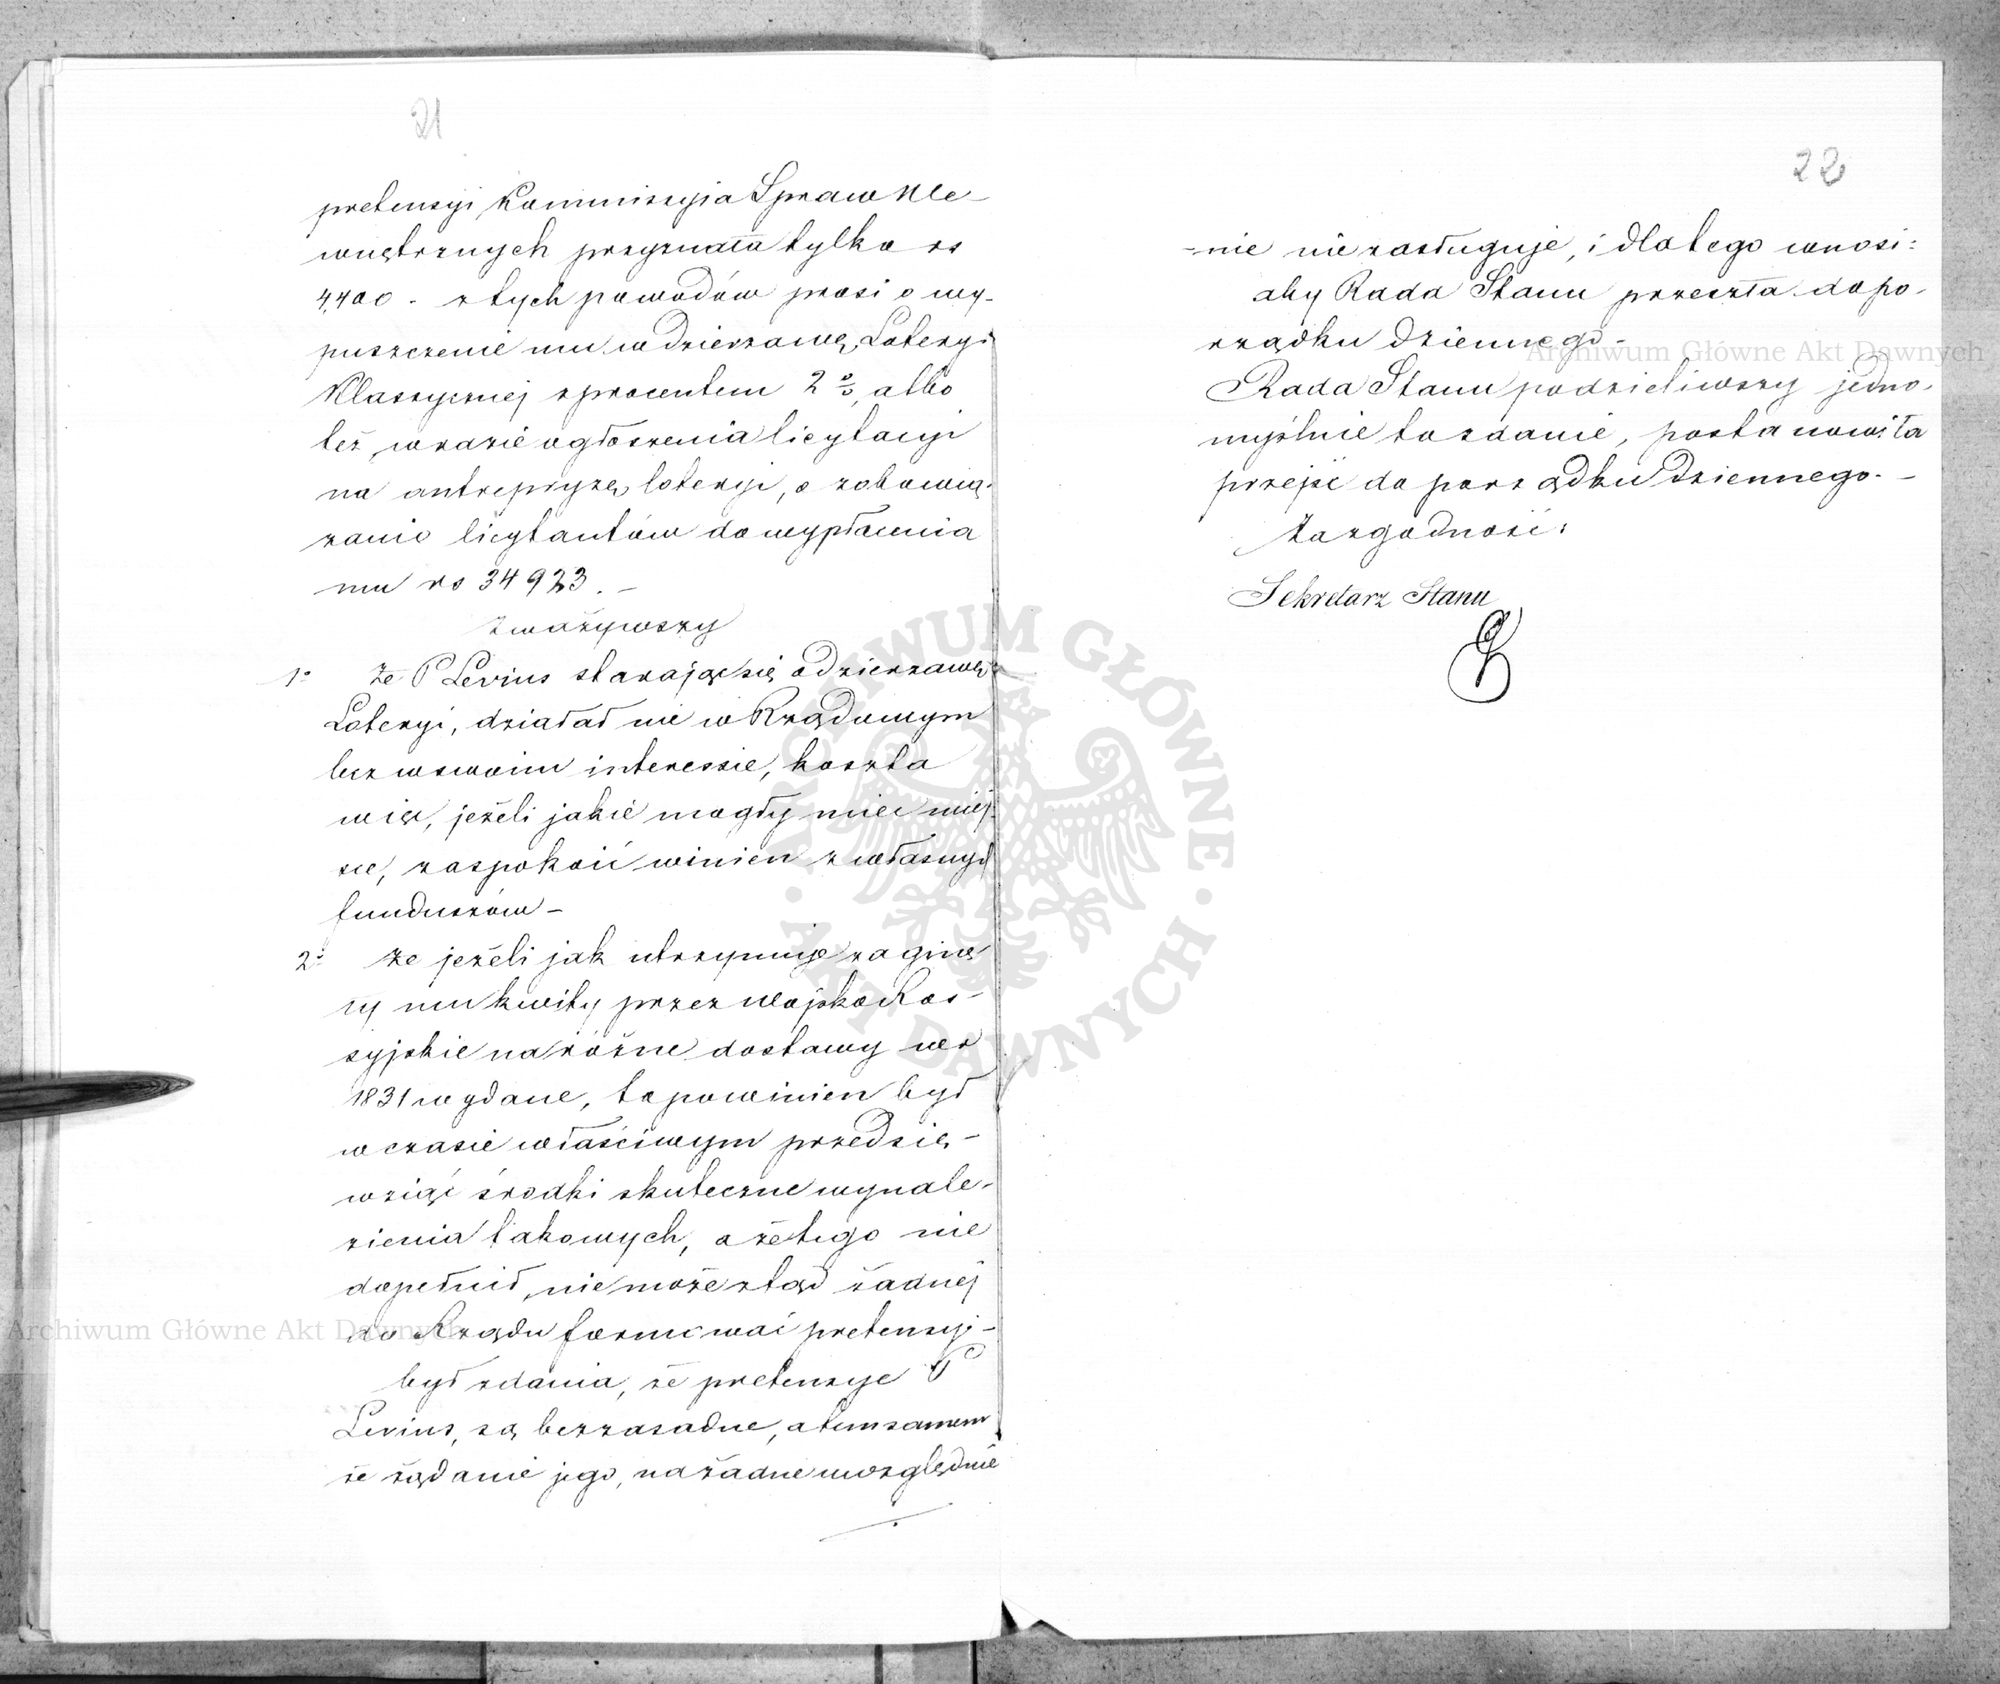 21
pretensyi Kommissyia Spraw We-
wnętrznych przyznała tylko rs
4,400 - z tych powodów prosi o wy-
puszczenie mu w dzierzawę Loteryi
Klassycznej z procentem 2 %, albo
też w razie ogłoszenia licytacyi
na antrepryzę loteryi, o zobowią-
zanie licytantów do wypłacenia
mu rs 34923. -
Zważywszy
1° Że P Levius starając się o dzierzawę
Loteryi, działał nie w Rządowym
lecz w swoim interessie, koszta
więc, jeżeli jakie mogły mieć miej-
sce, zaspokoić winien z własnych
funduszów -
2° że jeżeli jak utrzymuje zaginę-
ły mu kwity przez Wojsko Ros-
syjskie na różne dostawy w r
1831 wydane, to powinien był
w czasie właściwym przedsię-
wziąć środki skuteczne wynale-
zienia takowych, a że tego nie
dopełnił, nie może ztąd żadnej
do Rządu formować pretensyi -
był zdania, że pretensye P
Levius, są bezzasadne, a tem samem
że żądanie jego, na żadne uwzględnie
22
-nie nie zasługuje, i dla tego wnosi:
aby Rada Stanu przeszła do po-
rządku dziennego -
Rada Stanu podzieliwszy jedno-
myślnie to zdanie, postanowiła
przejść do porządku dziennego. -
Za zgodność:
Sekretarz Stanu
Archiwum Główne Akt Dawnych
Archiwum Główne Akt Dawnych
ARCHIWUM GŁÓWNE · AKT DAWNYCH ·